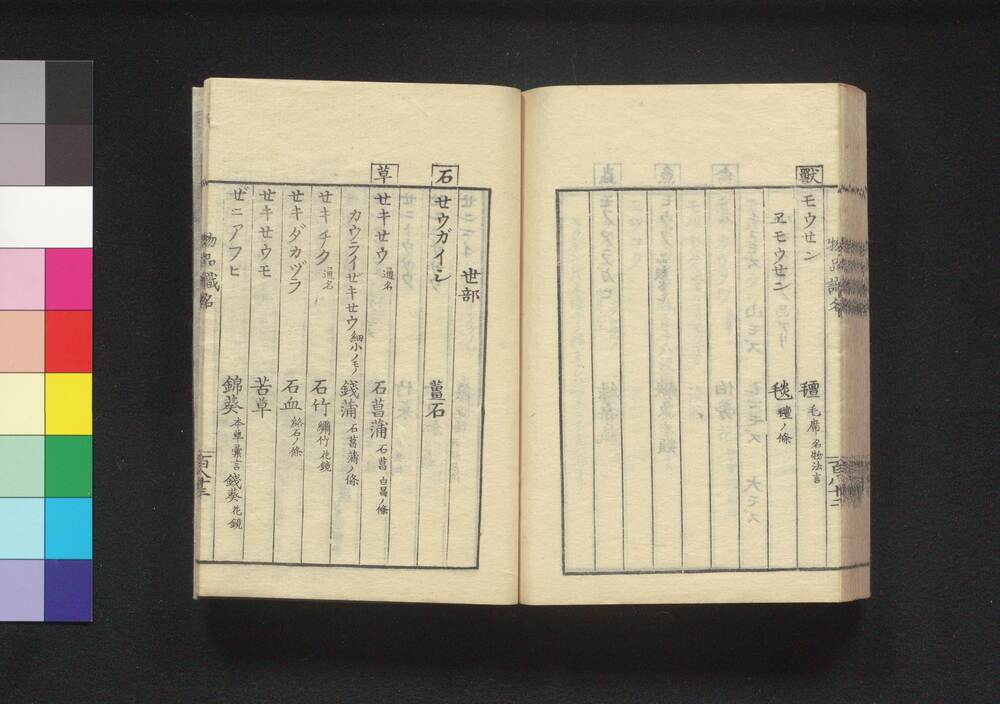 獸
モウせン 氊 毛席 名物法言
ヱモウせン 毯 氊ノ條
世部
石
せウガイシ 薑石
草
せキせウ 通名 石菖蒲 石菖 白昌ノ條
カウライせキせウ 細小ノモノ 錢蒲 石菖蒲ノ條
せキチク 通名 石竹 繡竹 花鏡
せキダカヅラ 石血 絡石ノ條
せキせウモ 苦草
ぜニアフヒ 錦葵 本草彙言 錢葵 花鏡
物品識名